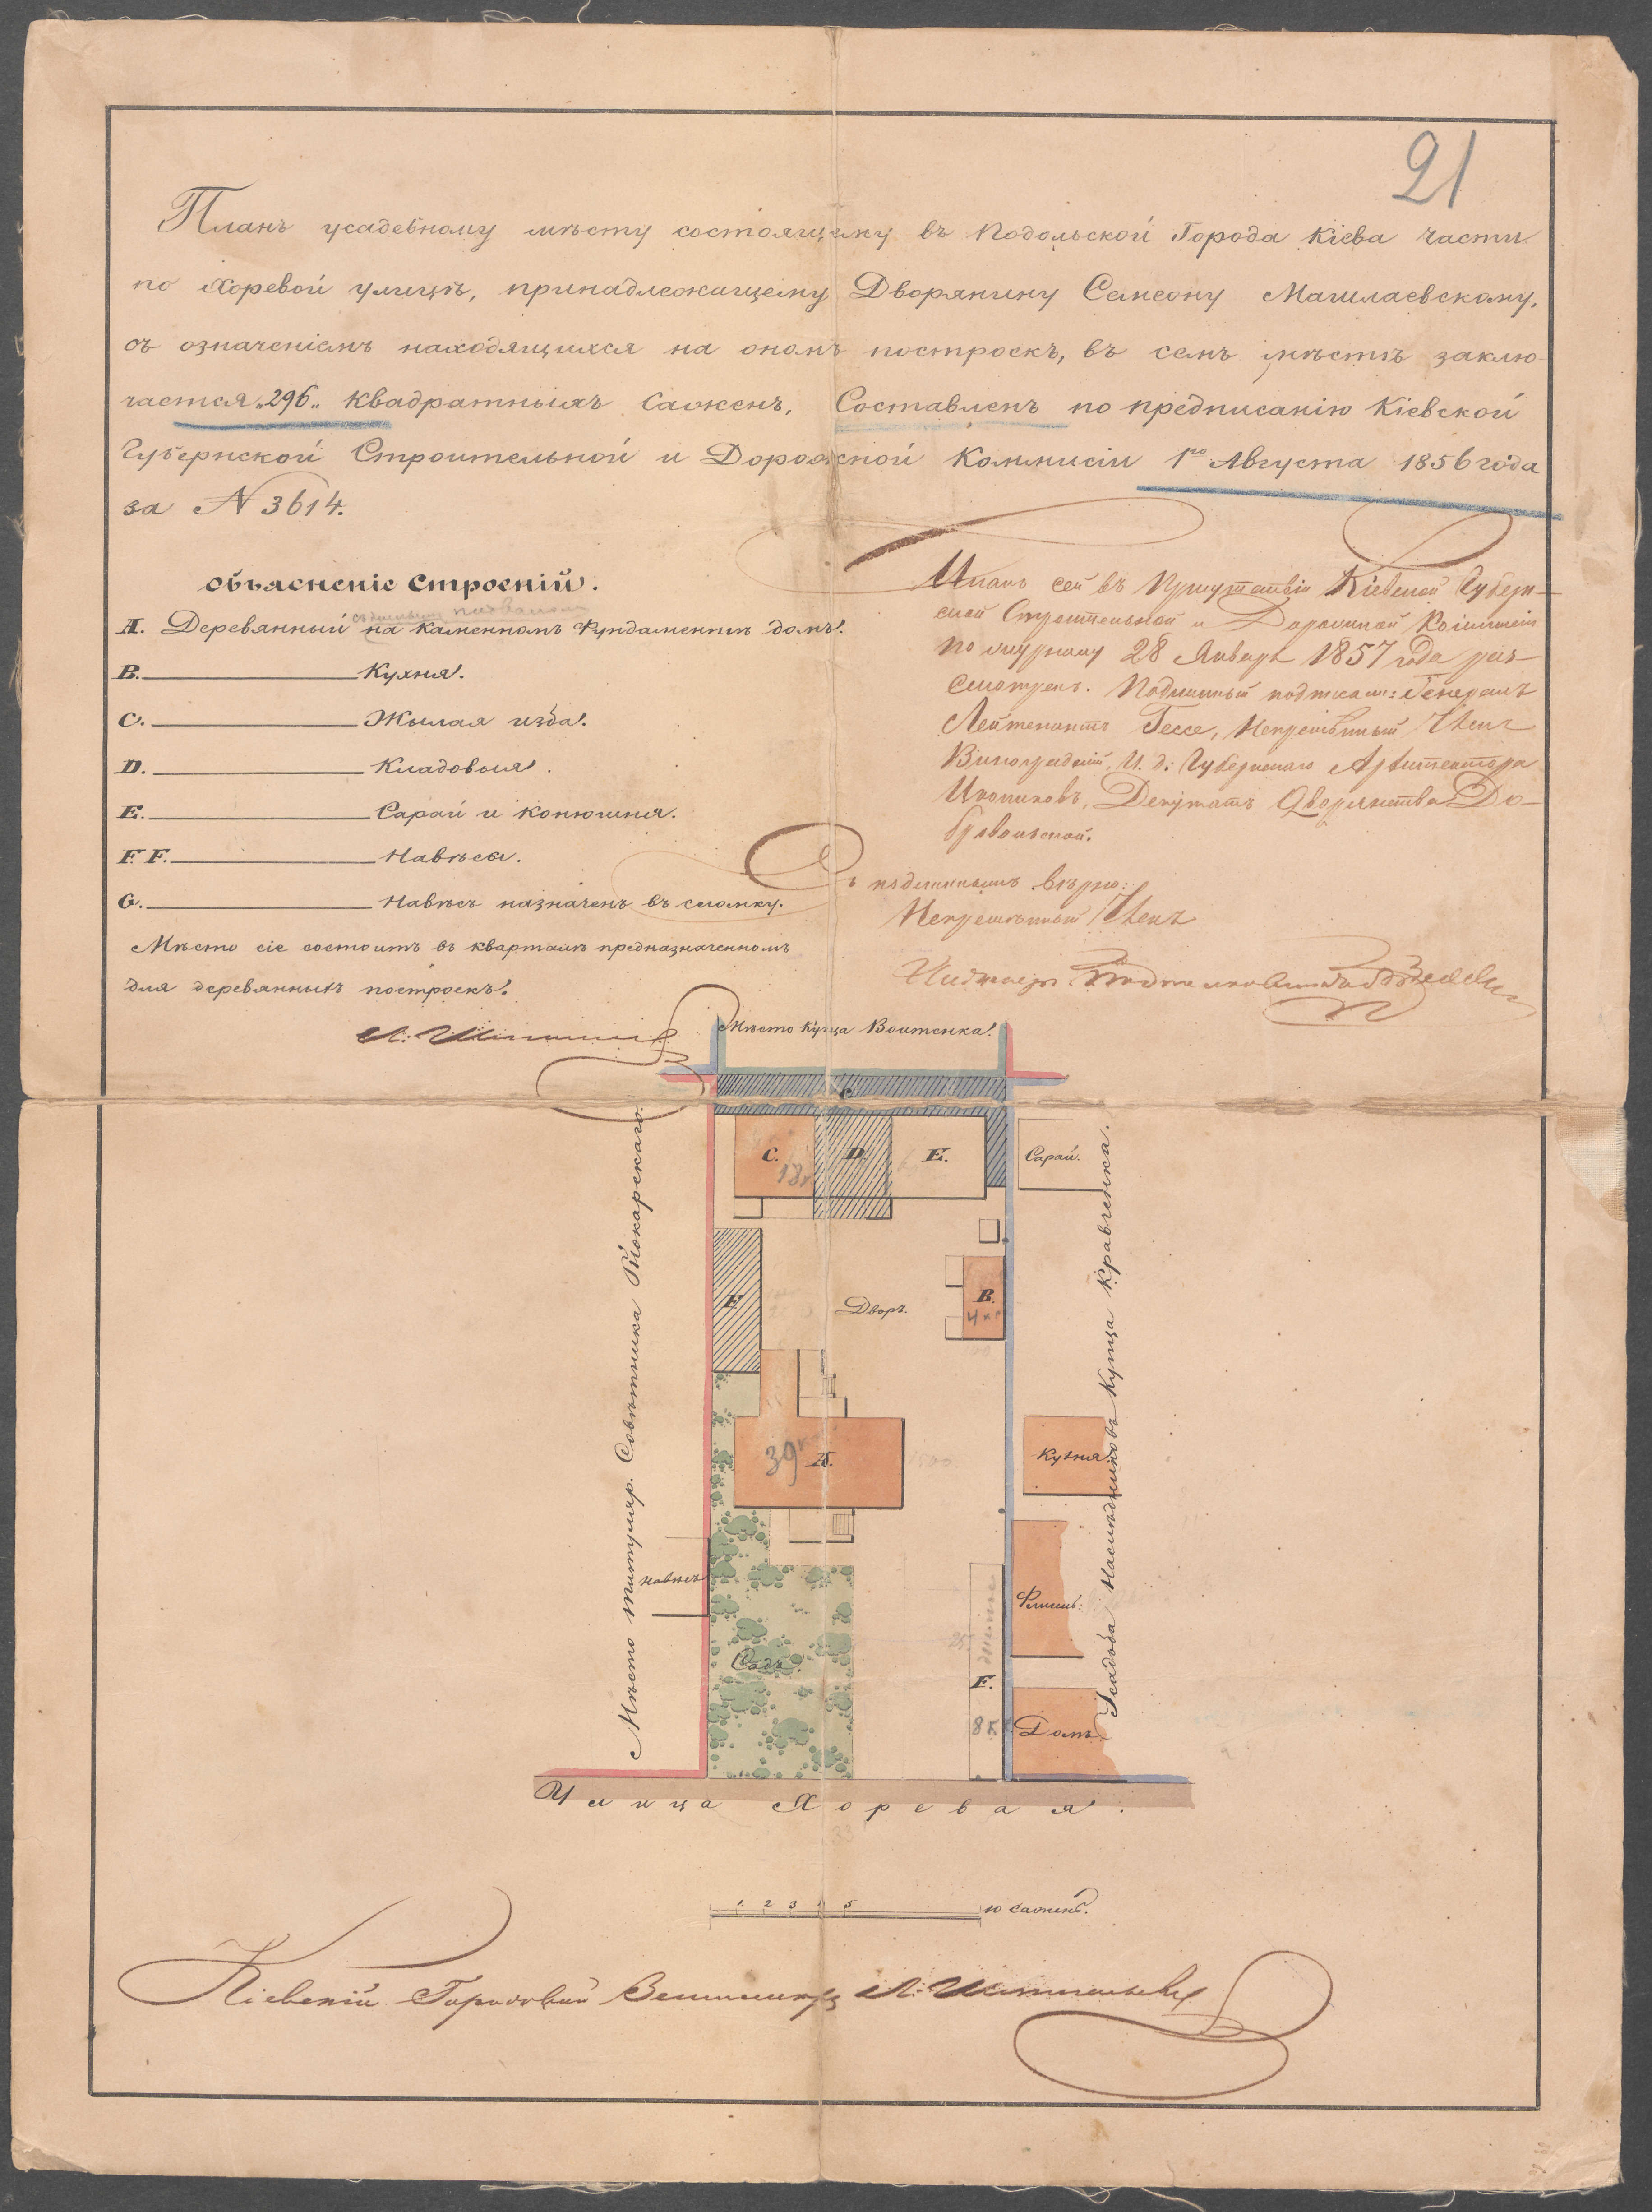 21
Планъ усадебному мѣсту состоящему въ Подольской Города Кіева части
по Хоревой улицѣ, принадлежащему Дворянину Семеону
съ означеніемъ находящихся на ономъ построекъ, въ семъ мѣстѣ заклю-
чается „296„ квадратныхъ сажень, Составленъ по предписанію Кіевской
Губернской Строительной и Дорожной Коммисіи 1го Августа 1856 года
за N 3614.
Объясненіе Строеній.
A. Деревянный на каменномъ Фундаментѣ домъ.
B. Кухня.
C. Жылая изба.
D. Кладовыя.
E. Сарай и конюшня.
F. F. Навѣсы.
G. Навѣсъ назначенъ въ сломку.
Мѣсто сіе состоитъ въ кварталѣ предназначенномъ
для деревянныхъ построекъ.
Планъ сей въ Присутствіи Кіевской Губерн-
ской Строительной и Дорожной Коммисіи
по журналу 28 Января 1857 года раз-
смотренъ. Подлинный подписали: Генералъ
Лейтенантъ Гессе, Непремѣнный Членъ
И. д. Губернскаго Архитектора
Иконниковъ, Депутатъ Дворянства До-
бровольской.
Съ подлиннымъ вѣрно:
Непремѣнный Членъ
Мѣсто купца Воитенка.
C. 18 D. E. Сарай.
F. Дворъ. B. 4
39 A. Кухня.
Навѣсъ
Флигель.
Садъ. 25
F.
8 Домъ
Мѣсто титуляр. Совѣтника
Усадьба Наслѣдниковъ Купца Кравченка.
Улица Хоревая.
1 2 3 5 10 сажень.
Кіевскій Городовой